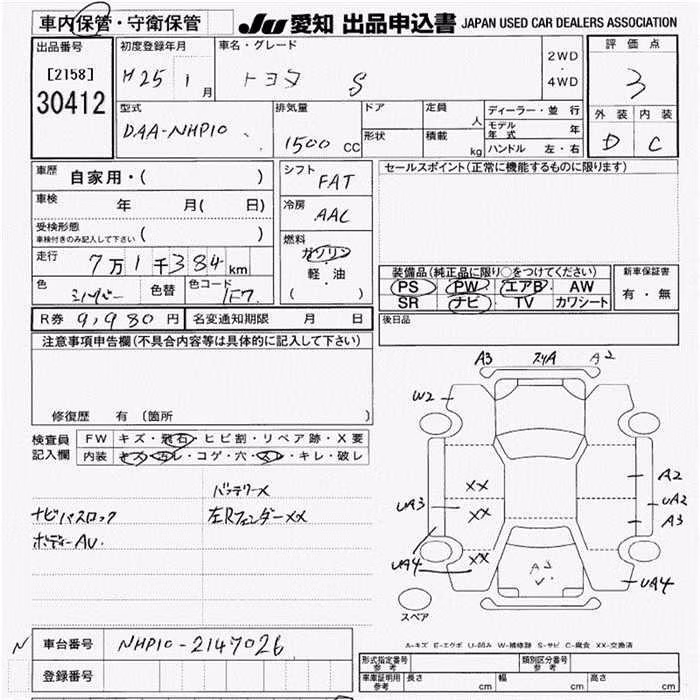 車内保管・守衛保管 JU 愛知 出品申込書 JAPAN USED CAR DEALERS ASSOCIATION
出品番号 初度登録年月 車名・グレード 2WD・4WD 評価点
[2158] 30412 H25 1月 トヨタ S 3
型式 排気量 ドア 定員 人 ディーラー・並行 外装 内装
DAA-NHP10 1500 CC 形状 積載 kg モデル年式 年 D C
ハンドル 左・右
車歴 自家用・( ) シフト FAT セールスポイント(正常に機能するものに限ります)
車検 年 月( 日) 冷房 AAC
受検形態 車検付きのみ記入して下さい ( )
燃料 ガソリン 軽・油 ( )
走行 7万1千384km 装備品(純正品に限り○をつけてください) 新車保証書
色 シルバー 色替 色コード 1F7 PS PW エアB AW 有・無
SR ナビ TV カワシート
R券 9,980円 名変通知期限 月 日 後日品
注意事項申告欄(不具合内容等は具体的に記入して下さい)
修復歴 有(箇所 )
検査員記入欄 FW キズ・飛石・ヒビ割・リペア跡・X要
内装 キズ・汚レ・コゲ・穴・スレ・キレ・破レ
バッテリーX
ナビパスロック 左RフェンダーXX
ボディーAU.
A3 スリA A2
W2
A2
XX
UA3 UA2
XX A3
UA4 XX UA4
スペア
A-キズ E-エクボ U-凹み W-補修跡 S-サビ C-腐食 XX-交換済
N 車台番号 NHP10-2147026
登録番号
形式指定番号 参考 類別区分番号 参考
車庫証明用 参考 長さ cm 幅 cm 高さ cm